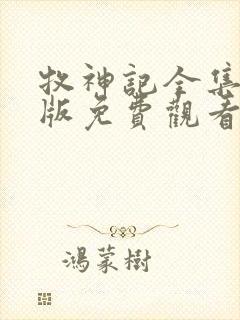 牧神記全集
版免費觀看
鴻蒙樹